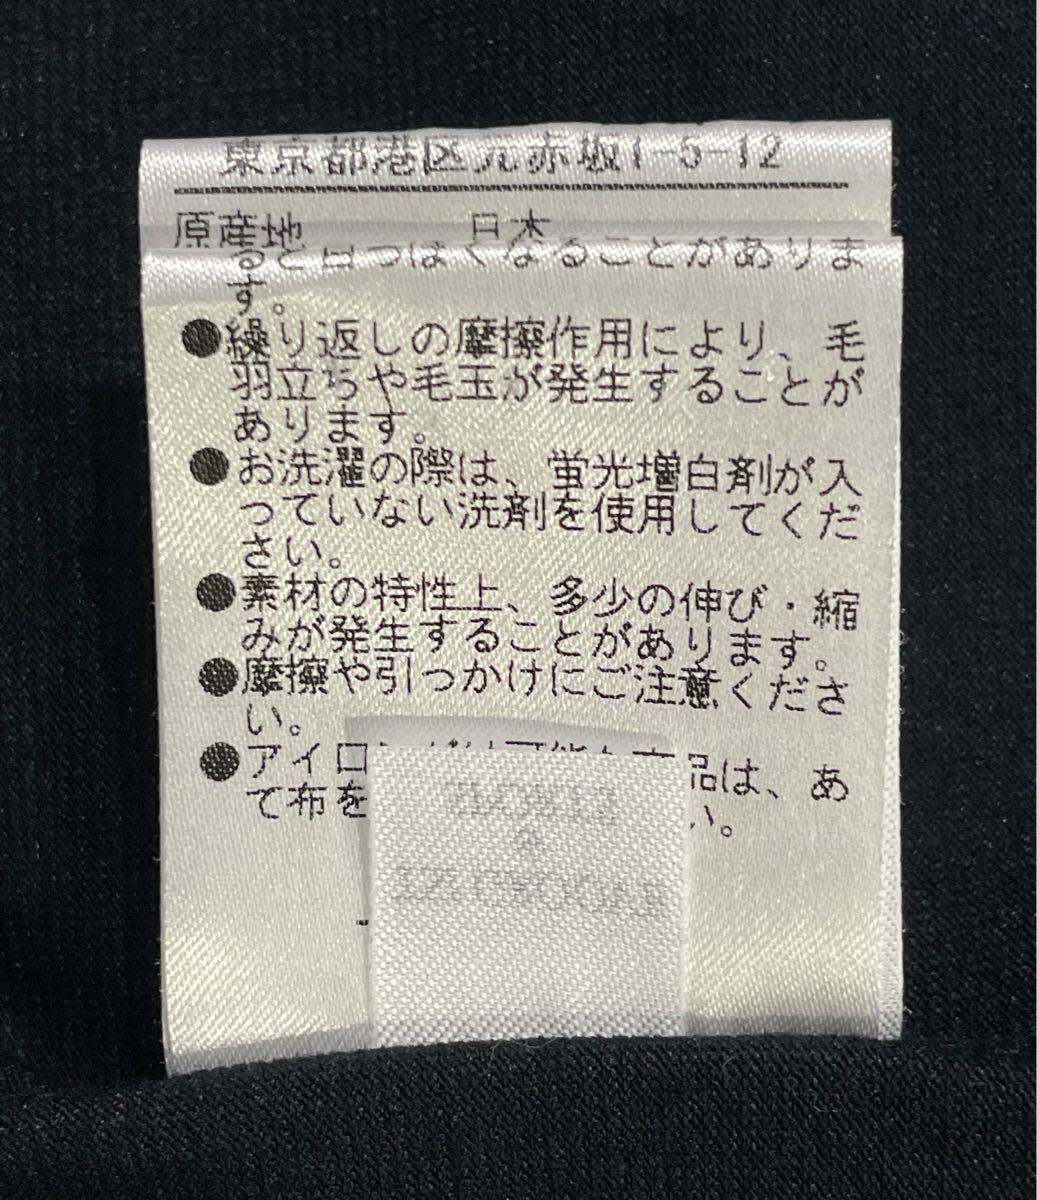 東京都港区元赤坂1-5-12
原産地 日本
ると白っぽくなることがありま
す。
●繰り返しの摩擦作用により、毛
羽立ちや毛玉が発生することが
あります。
●お洗濯の際は、蛍光増白剤が入
っていない洗剤を使用してくだ
さい。
●素材の特性上、多少の伸び・縮
みが発生することがあります。
●摩擦や引っかけにご注意くださ
い。
●アイロン 品は、あ
て布を い。